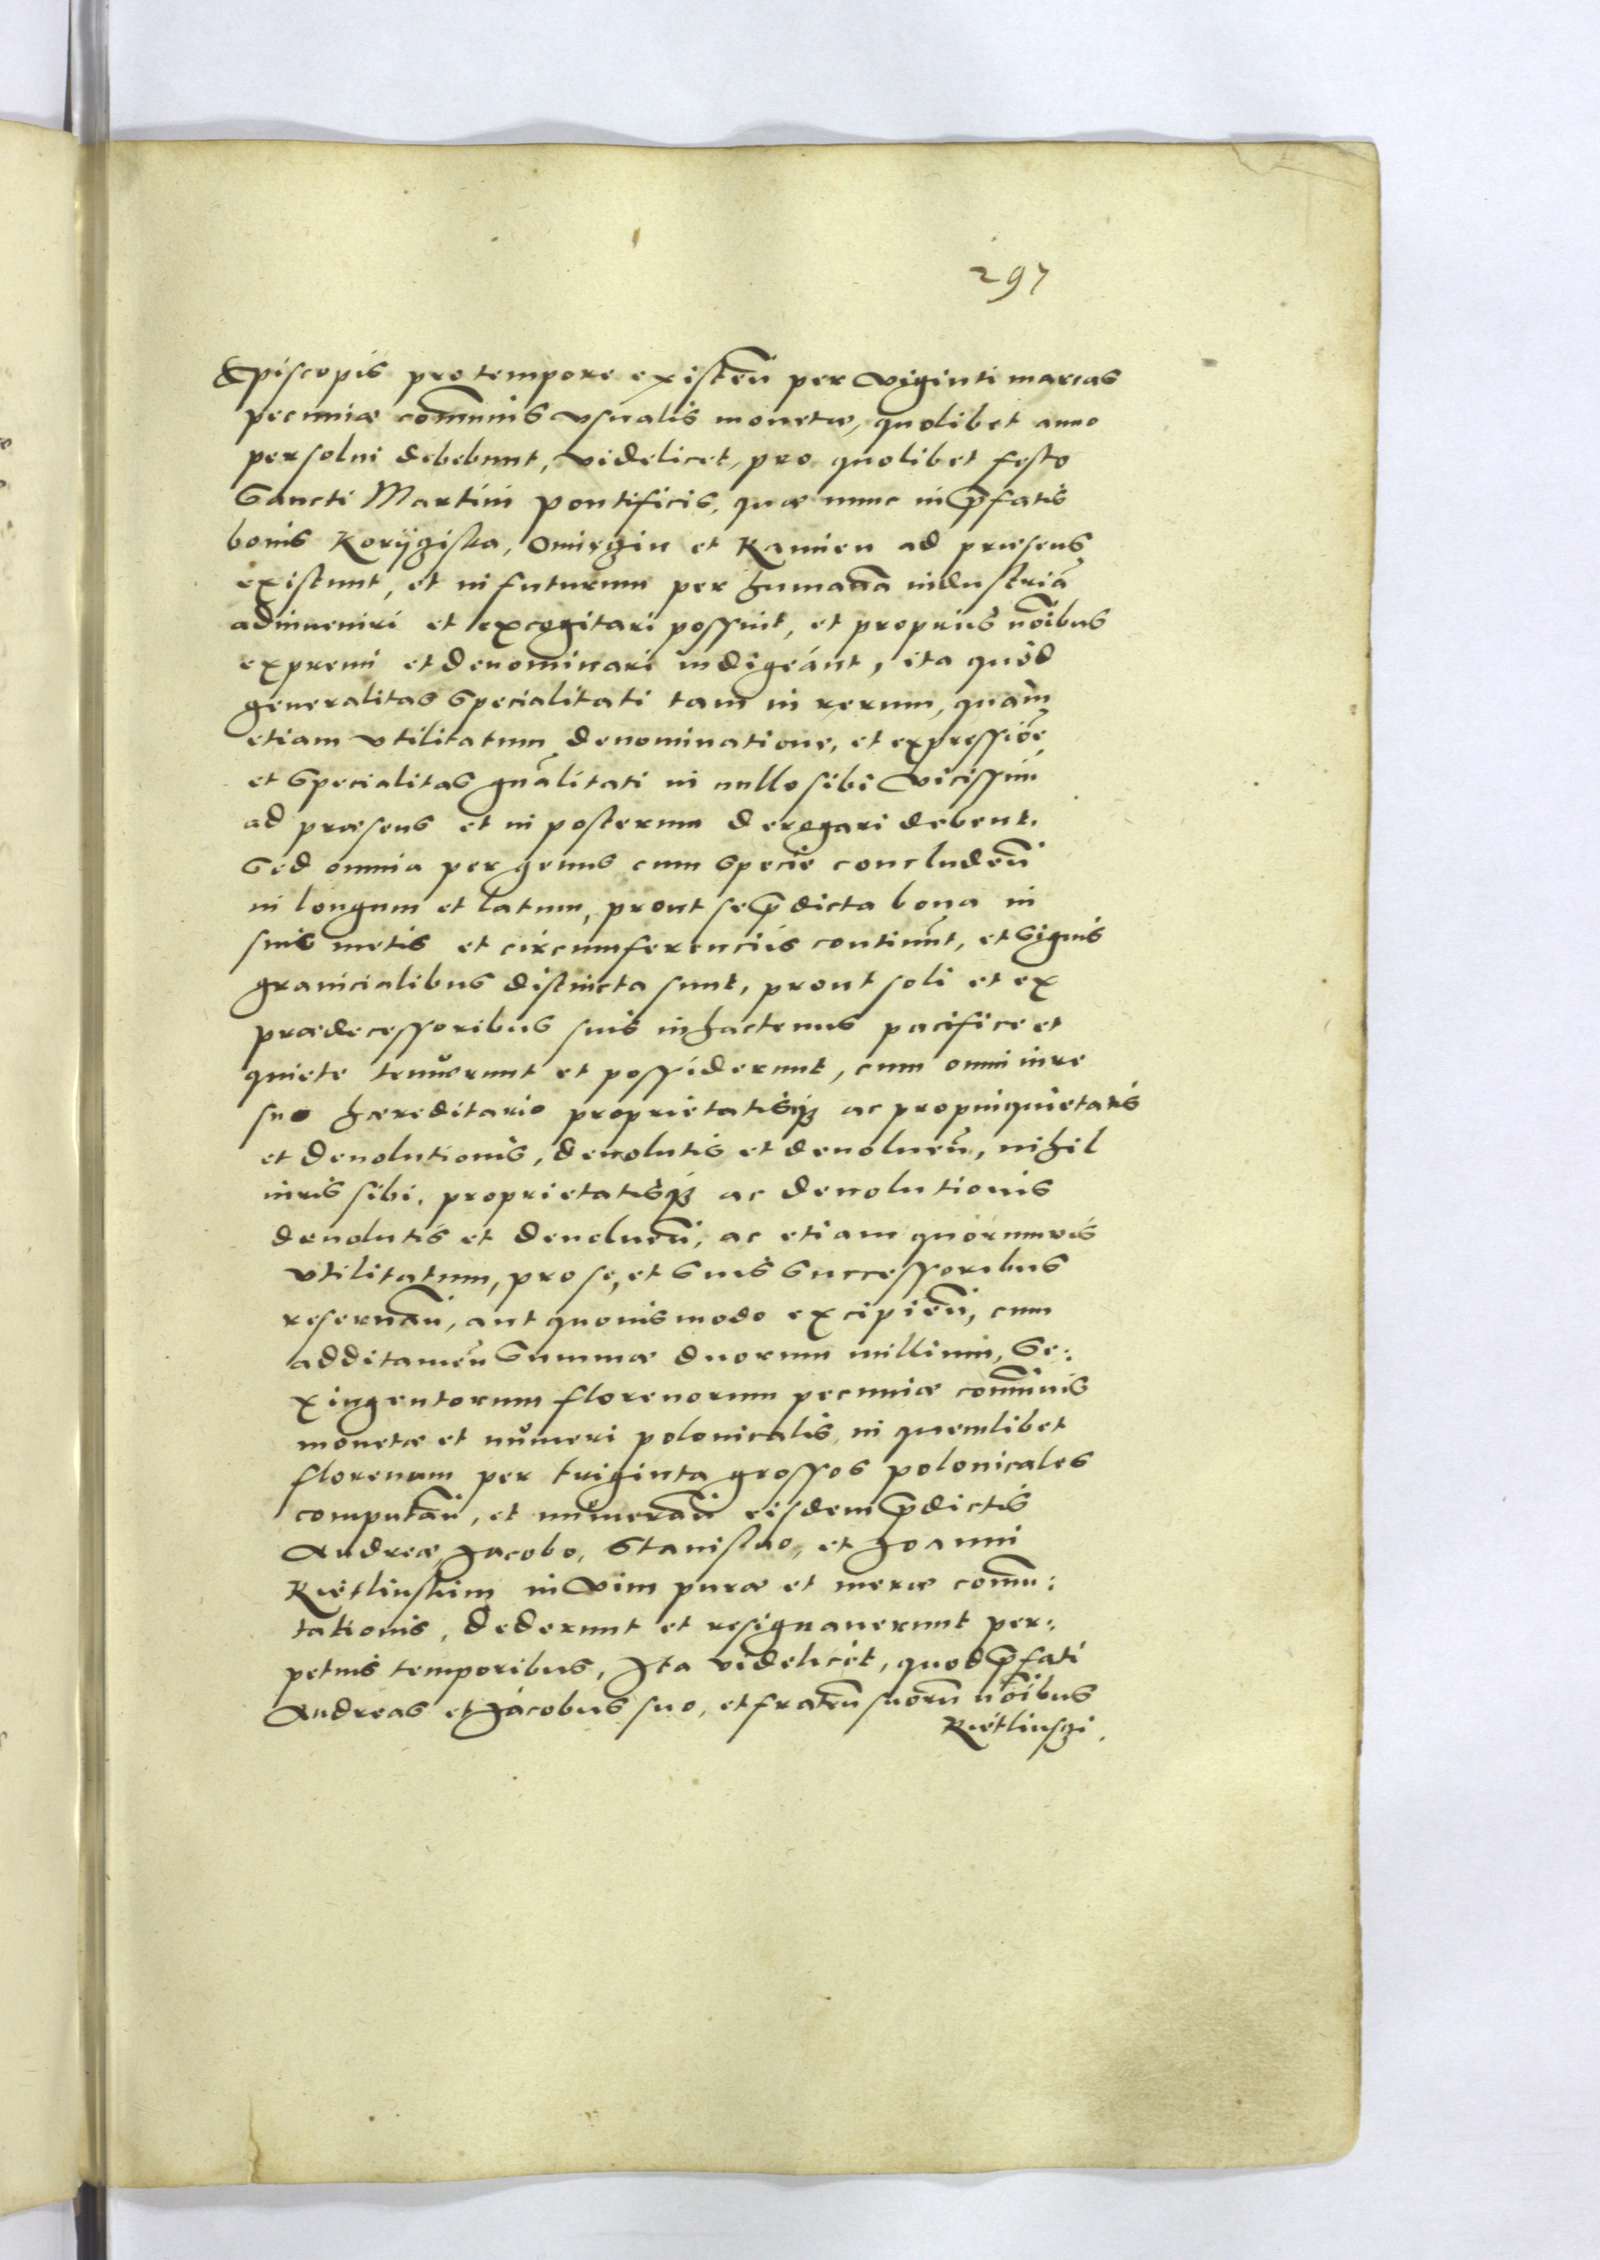 297
Episcopis pro tempore existeñ per viginti marcas
pecuniæ com̃unis vsualis monetæ, quolibet anno
persolui debebunt, videlicet, pro quolibet festo
Sancti Martini Pontificis, quæ nunc in p̃fatis
bonis Koryÿgiska, Omięgin et Kamien ad præsens
existunt, et in futurum per humanã industriã
adinueniri et excogitari possint, et proprijs nõibus
expremi et denominari indigeánt, ita quòd
generalitas specialitati tam in rerum, quàm
etiam vtilitatum denominatione, et expressiõe,
et specialitas gnãlitati in nullo sibi vicissim
ad præsens et in posterum derogari debent.
Sed omnia per genus cum specie concludeñ
in longum et latum, prout sep̃dicta bona in
suis metis et circumferencijs continẽt, et signis
granicialibus distincta sunt, prout soli et ex
prædecessoribus suis in hactenus pacifice et
quiete tenŭerunt et possiderunt, cum omni iure
suo hæreditario proprietatisq₃ ac propinquietatis
et deuolutionis, deuolutis et deuolueñ, nihil
iuris sibi, proprietatisq₃ ac deuolutionis
deuolutis et deuolueñ, ac etiam quorumuis
vtilitatum, pro se, et suis successoribus
reseruañ, aut quouismodo excipieñ, cum
additameñ summæ duorum millium, Se:
xingentorum florenorum pecuniæ com̃unis
monetæ et nŭmeri polonicalis, in quemlibet
florenum per triginta grossos polonicales
computañ, et nŭmerañ eisdem p̃dictis
Andreæ, Jacobo, Stanislao, et Joanni
Kietlinskim in vim puræ et meræ com̃u:
tationis, dederunt et resignauerunt per:
petuis temporibus, Ita videlicèt, quod p̃fati
Andreas et Jácobus suo, et frateñ suorũ nõibus
Kietlinszi.